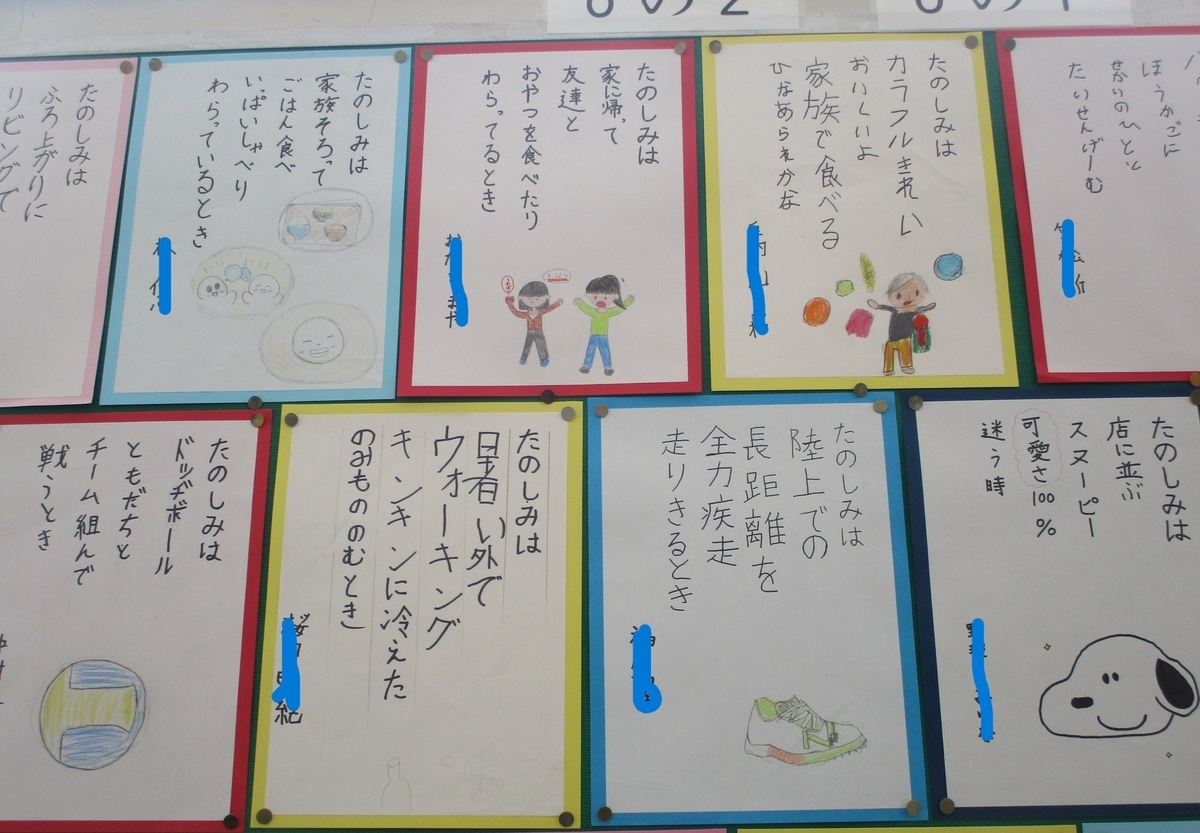 ほうかごに
せかいのひとと
たいせんげーむ
たのしみは
カラフルきれい
おいしいよ
家族で食べる
ひなあられかな
たのしみは
家に帰って
友達と
おやつを食べたり
わらってるとき
たのしみは
家族そろって
ごはん食べ
いっぱいしゃべり
わらっているとき
たのしみは
ふろ上がりに
リビングで
たのしみは
店に並ぶ
スヌーピー
可愛さ100%
迷う時
たのしみは
陸上での
長距離を
全力疾走
走りきるとき
たのしみは
暑い外で
ウォーキング
キンキンに冷えた
のみもののむとき
たのしみは
ドッヂボール
ともだちと
チーム組んで
戦うとき